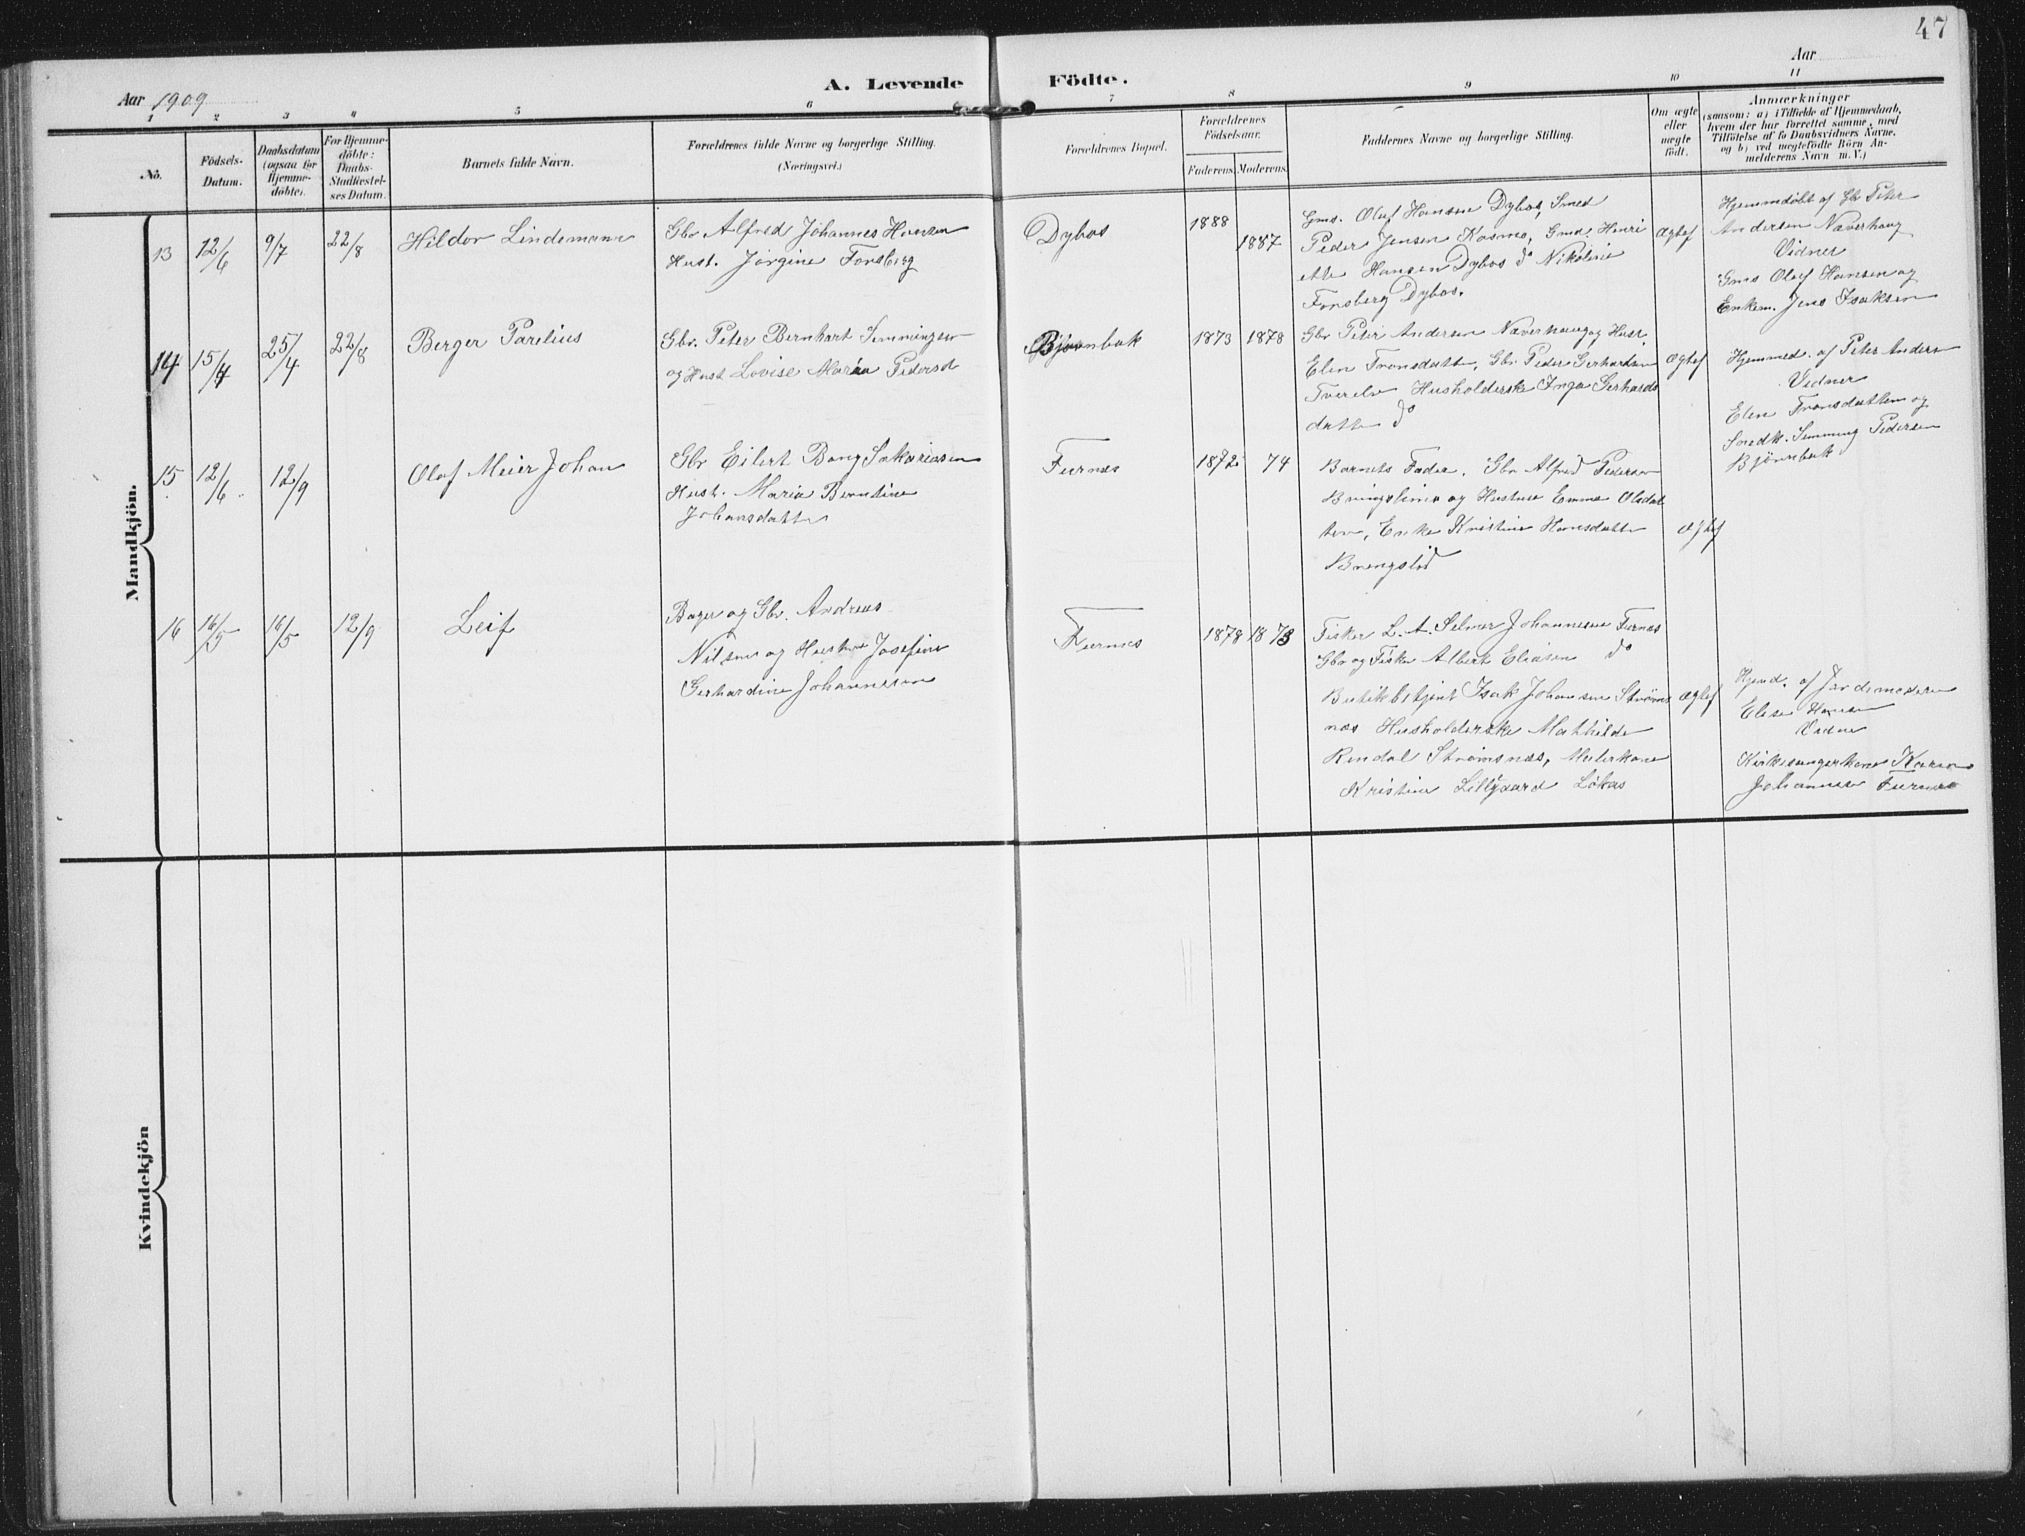 47
Aar 1909
A. Levende Födte.
Aar
1 2 3 4 5 6 7 8 9 10 11
No.
Födsels-
Datum.
Daabsdatum
(ogsaa for
Hjemme-
döbte).
For Hjemme-
döbte:
Daabs-
Stadfæstel-
ses Datum.
Barnets fulde Navn.
Forældrenes fulde Navne og borgerlige Stilling.
(Næringsvei.)
Forældrenes Bopæl.
Forældrenes
Födselsaar.
Faderens. Moderens.
Faddernes Navne og borgerlige Stilling.
Om ægte
eller
uægte
født.
Anmærkninger
(saasom: a) i Tilfælde af Hjemmedaab,
hvem der har forrettet samme, med
Tilföielse af to Daabsvidners Navne,
og b) ved uægtefödte Börn An-
melderens Navn m. V.)
Mandkjön.
13 12/6 9/7 22/8 Hildor Lindemann
Gbr Alfred Johannes Hansen
Hust. Jorgine Forsberg
Dybos
1888 1887
Gms. Oluf Hansen Dybos, Smed
Peder Jensen Kosmo, Gms. Henri
ette Hansen Dybos do Nikoline
Forsberg Dybos.
Ægtef
Hjemmdøbt af Gbr Peter
Andersen Naverhaug
Vidner
Gms Oluf Hansen og
Enkem. Jens Isaksen
14 15/4 25/4 22/8 Berger Parelius
Gbr. Peter Bernhart Simmingsen
og Hust Lovise Maria Pedersd
Bjørnbak
1873 1878
Gbr Peter Andersen Naverhaug og Hust.
Elen Tronsdatter, Gbr Peder Gerhardsen
Tverelv Husholderske Inga Gerhards
datter do
Ægtef
Hjemmed. af Peter Andersen
Vidner
Elen Tronsdatter og
Smedk. Simming Pedersen
Bjørnbak
15 12/6 12/9 Olaf Meier Johan
Gbr Eilert Bang Sakariasen
Hust. Maria Berntine
Johansdatter
Furnes
1872 74
Barnets Fader. Gbr Alfred Pedersen
og Hustru Emma Olsdat
ter, Enke Kristine Hansdatter
Brengslid
Ægtef
16 16/5 16/5 12/9 Leif
Bager og Gbr. Andreas
Nilsen og Hustru Josefine
Gerhardine Johannesen
Furnes
1878 1873
Fisker L. A. Selmer Johannesen Furnes
Gbr og Fisker Albert Eliasen do
Butikbetjent Isak Johansen Strøms
nes Husholderske Mathilde
Rendal Strømsnes, Malerkone
Kristine Lillgaard Løkaas
Ægtef
Hjemd. af Jordemoderen
Elise Hansen
Vidner
Kirkesangerkone Karen
Johannesen Furnes
Kvindekjön